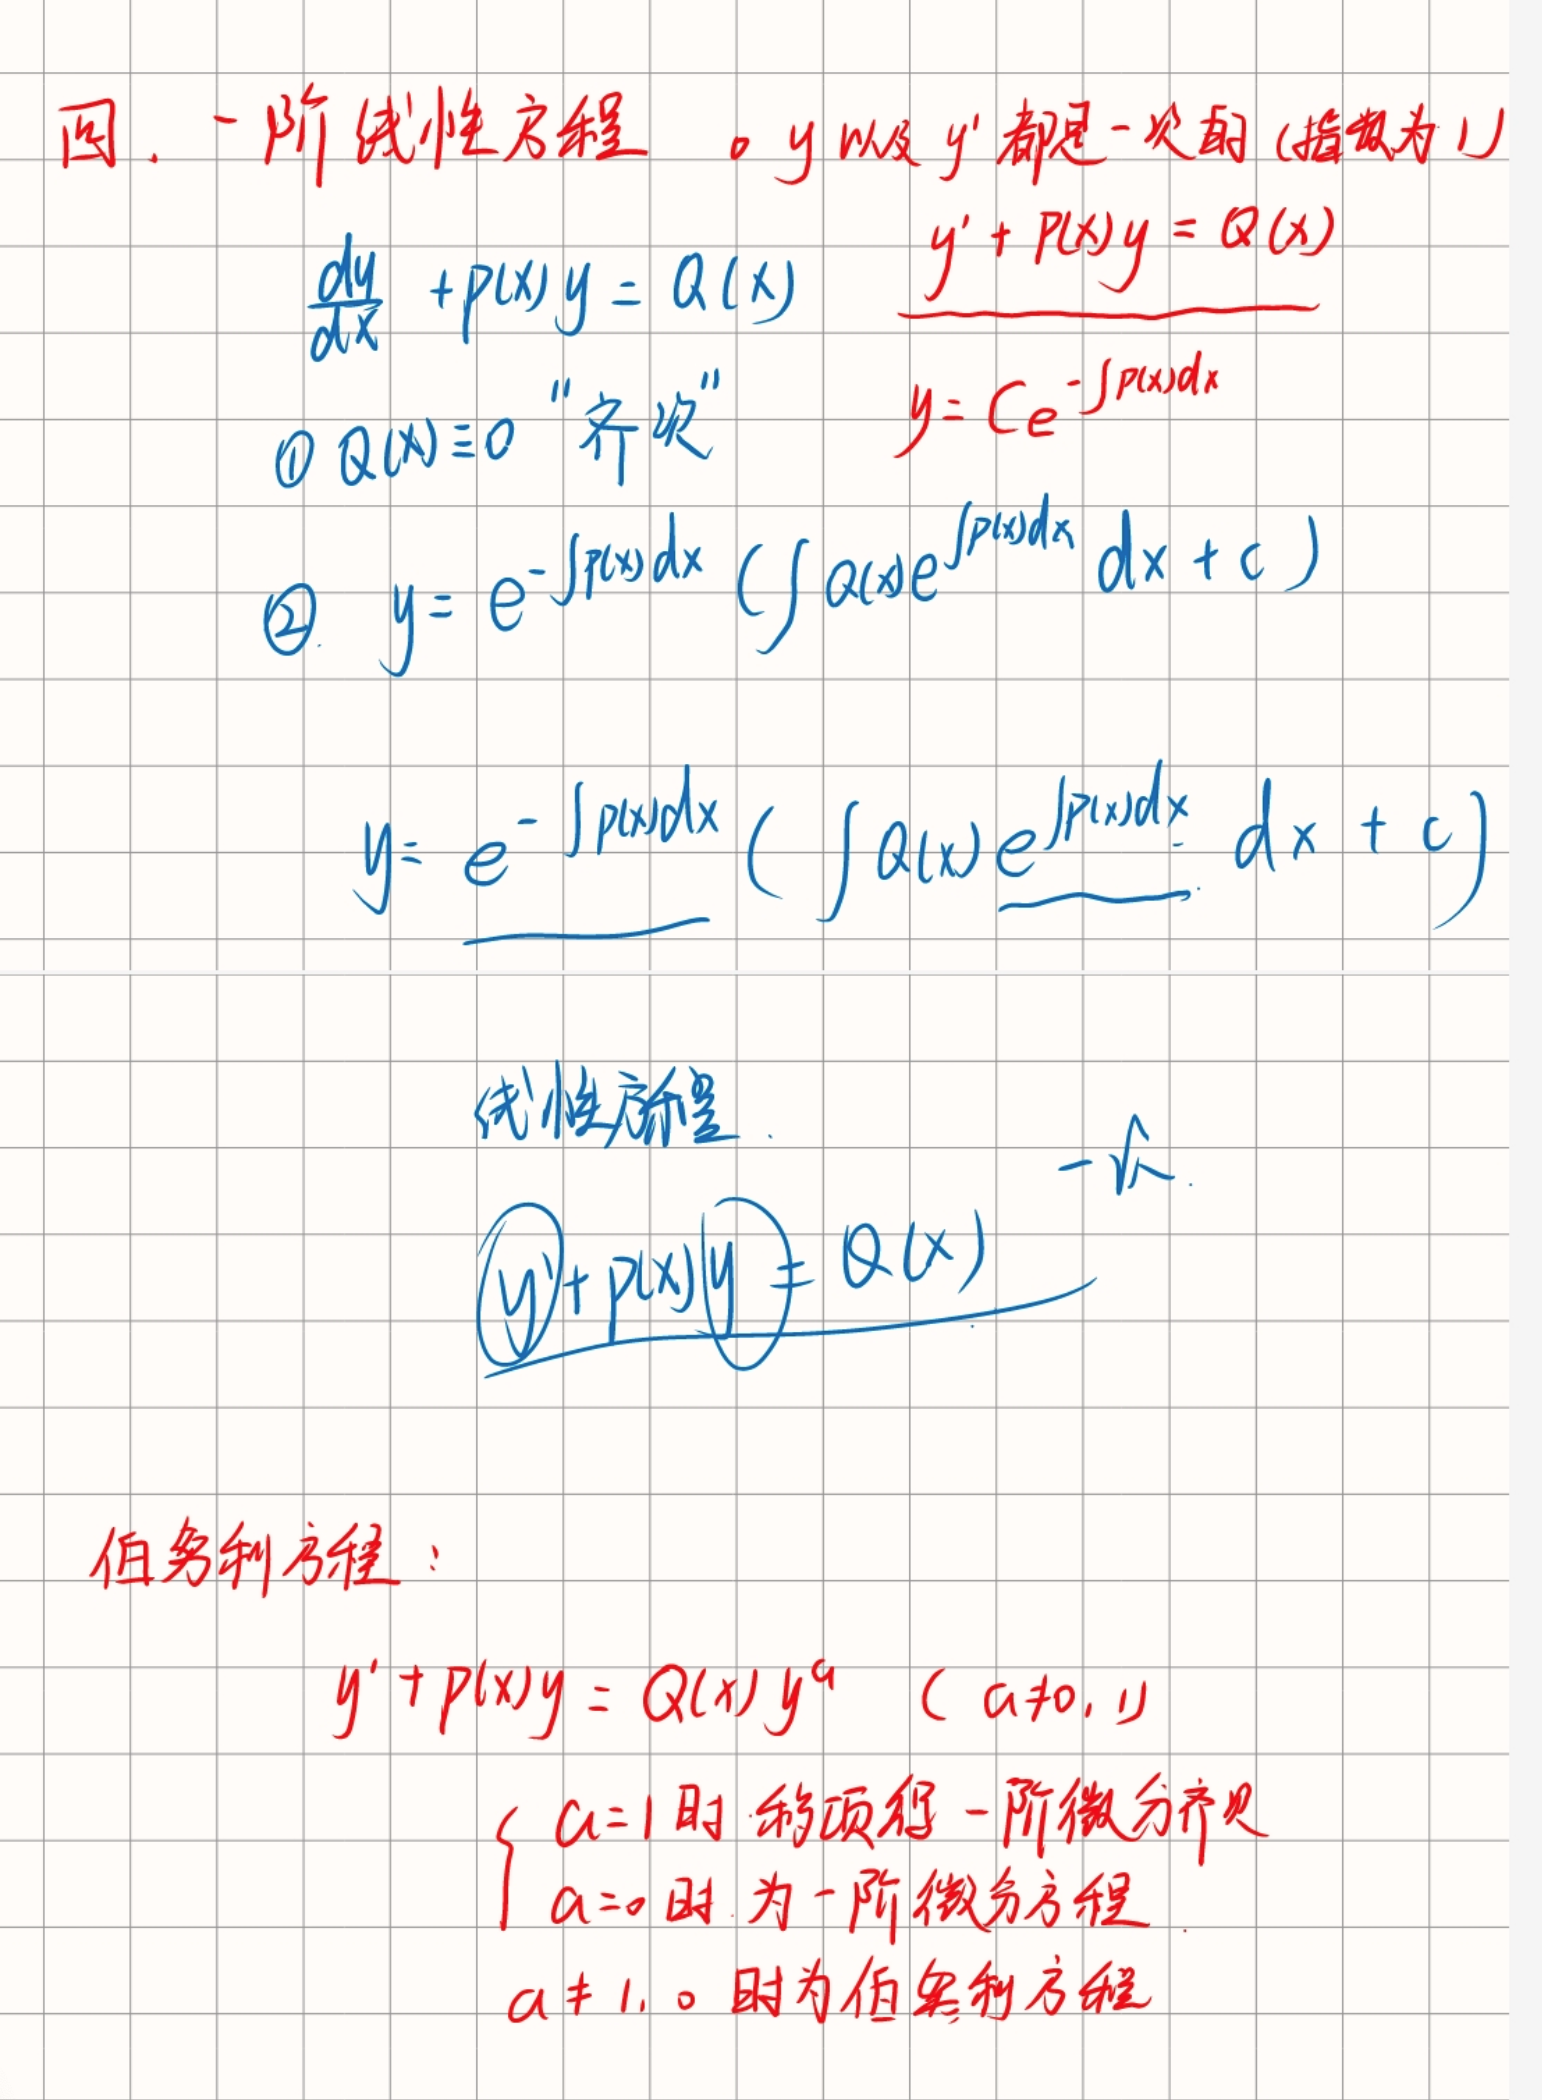 四. 一阶线性方程 。y 以及 y' 都是一次的 (指数为1)
y' + P(x)y = Q(x)
dy/dx + p(x)y = Q(x)
① Q(x)≡0 "齐次" y = Ce^{-∫P(x)dx}
②. y = e^{-∫p(x)dx} (∫Q(x)e^{∫p(x)dx} dx + c)
y = e^{-∫p(x)dx} (∫Q(x)e^{∫p(x)dx} dx + c)
线性方程.
一阶.
y' + p(x)y = Q(x)
伯努利方程:
y' + p(x)y = Q(x)y^a (a≠0,1)
a=1时移项得一阶微分齐次
a=0时.为一阶微分方程
a≠1,0 时为伯努利方程